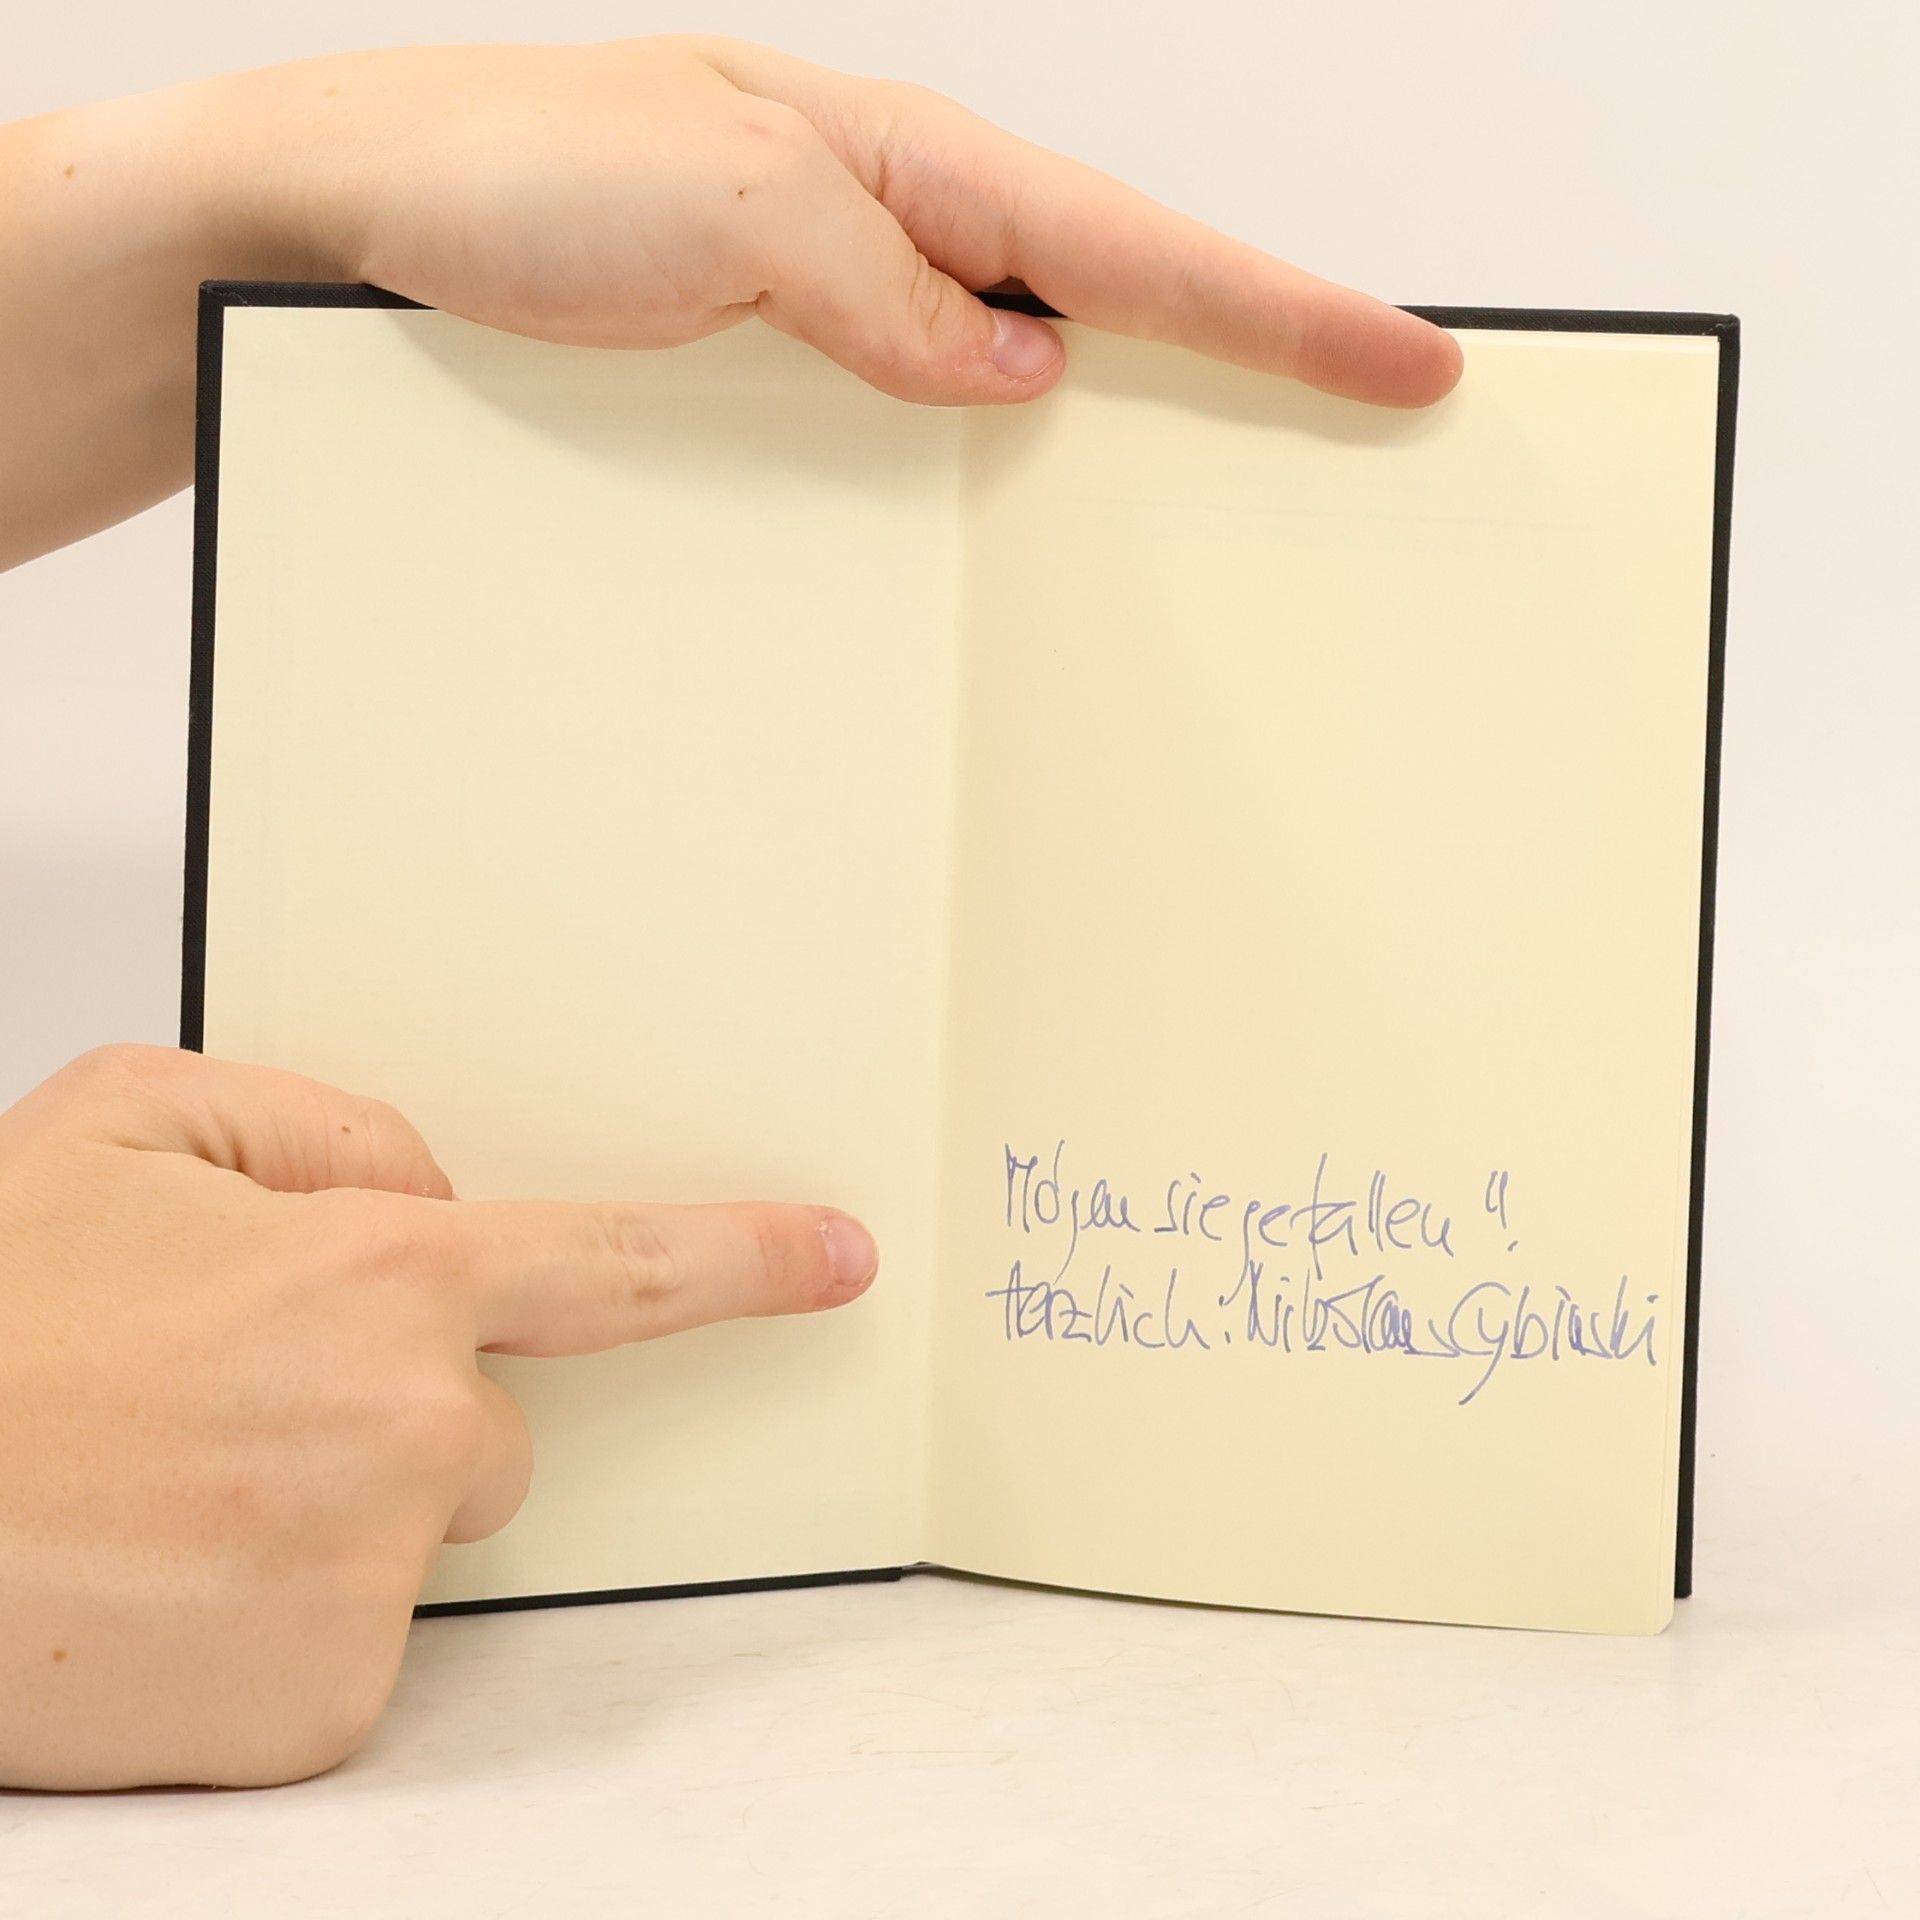 Mögen sie gefallen"!
Herzlich: Nikolaus Cybinski